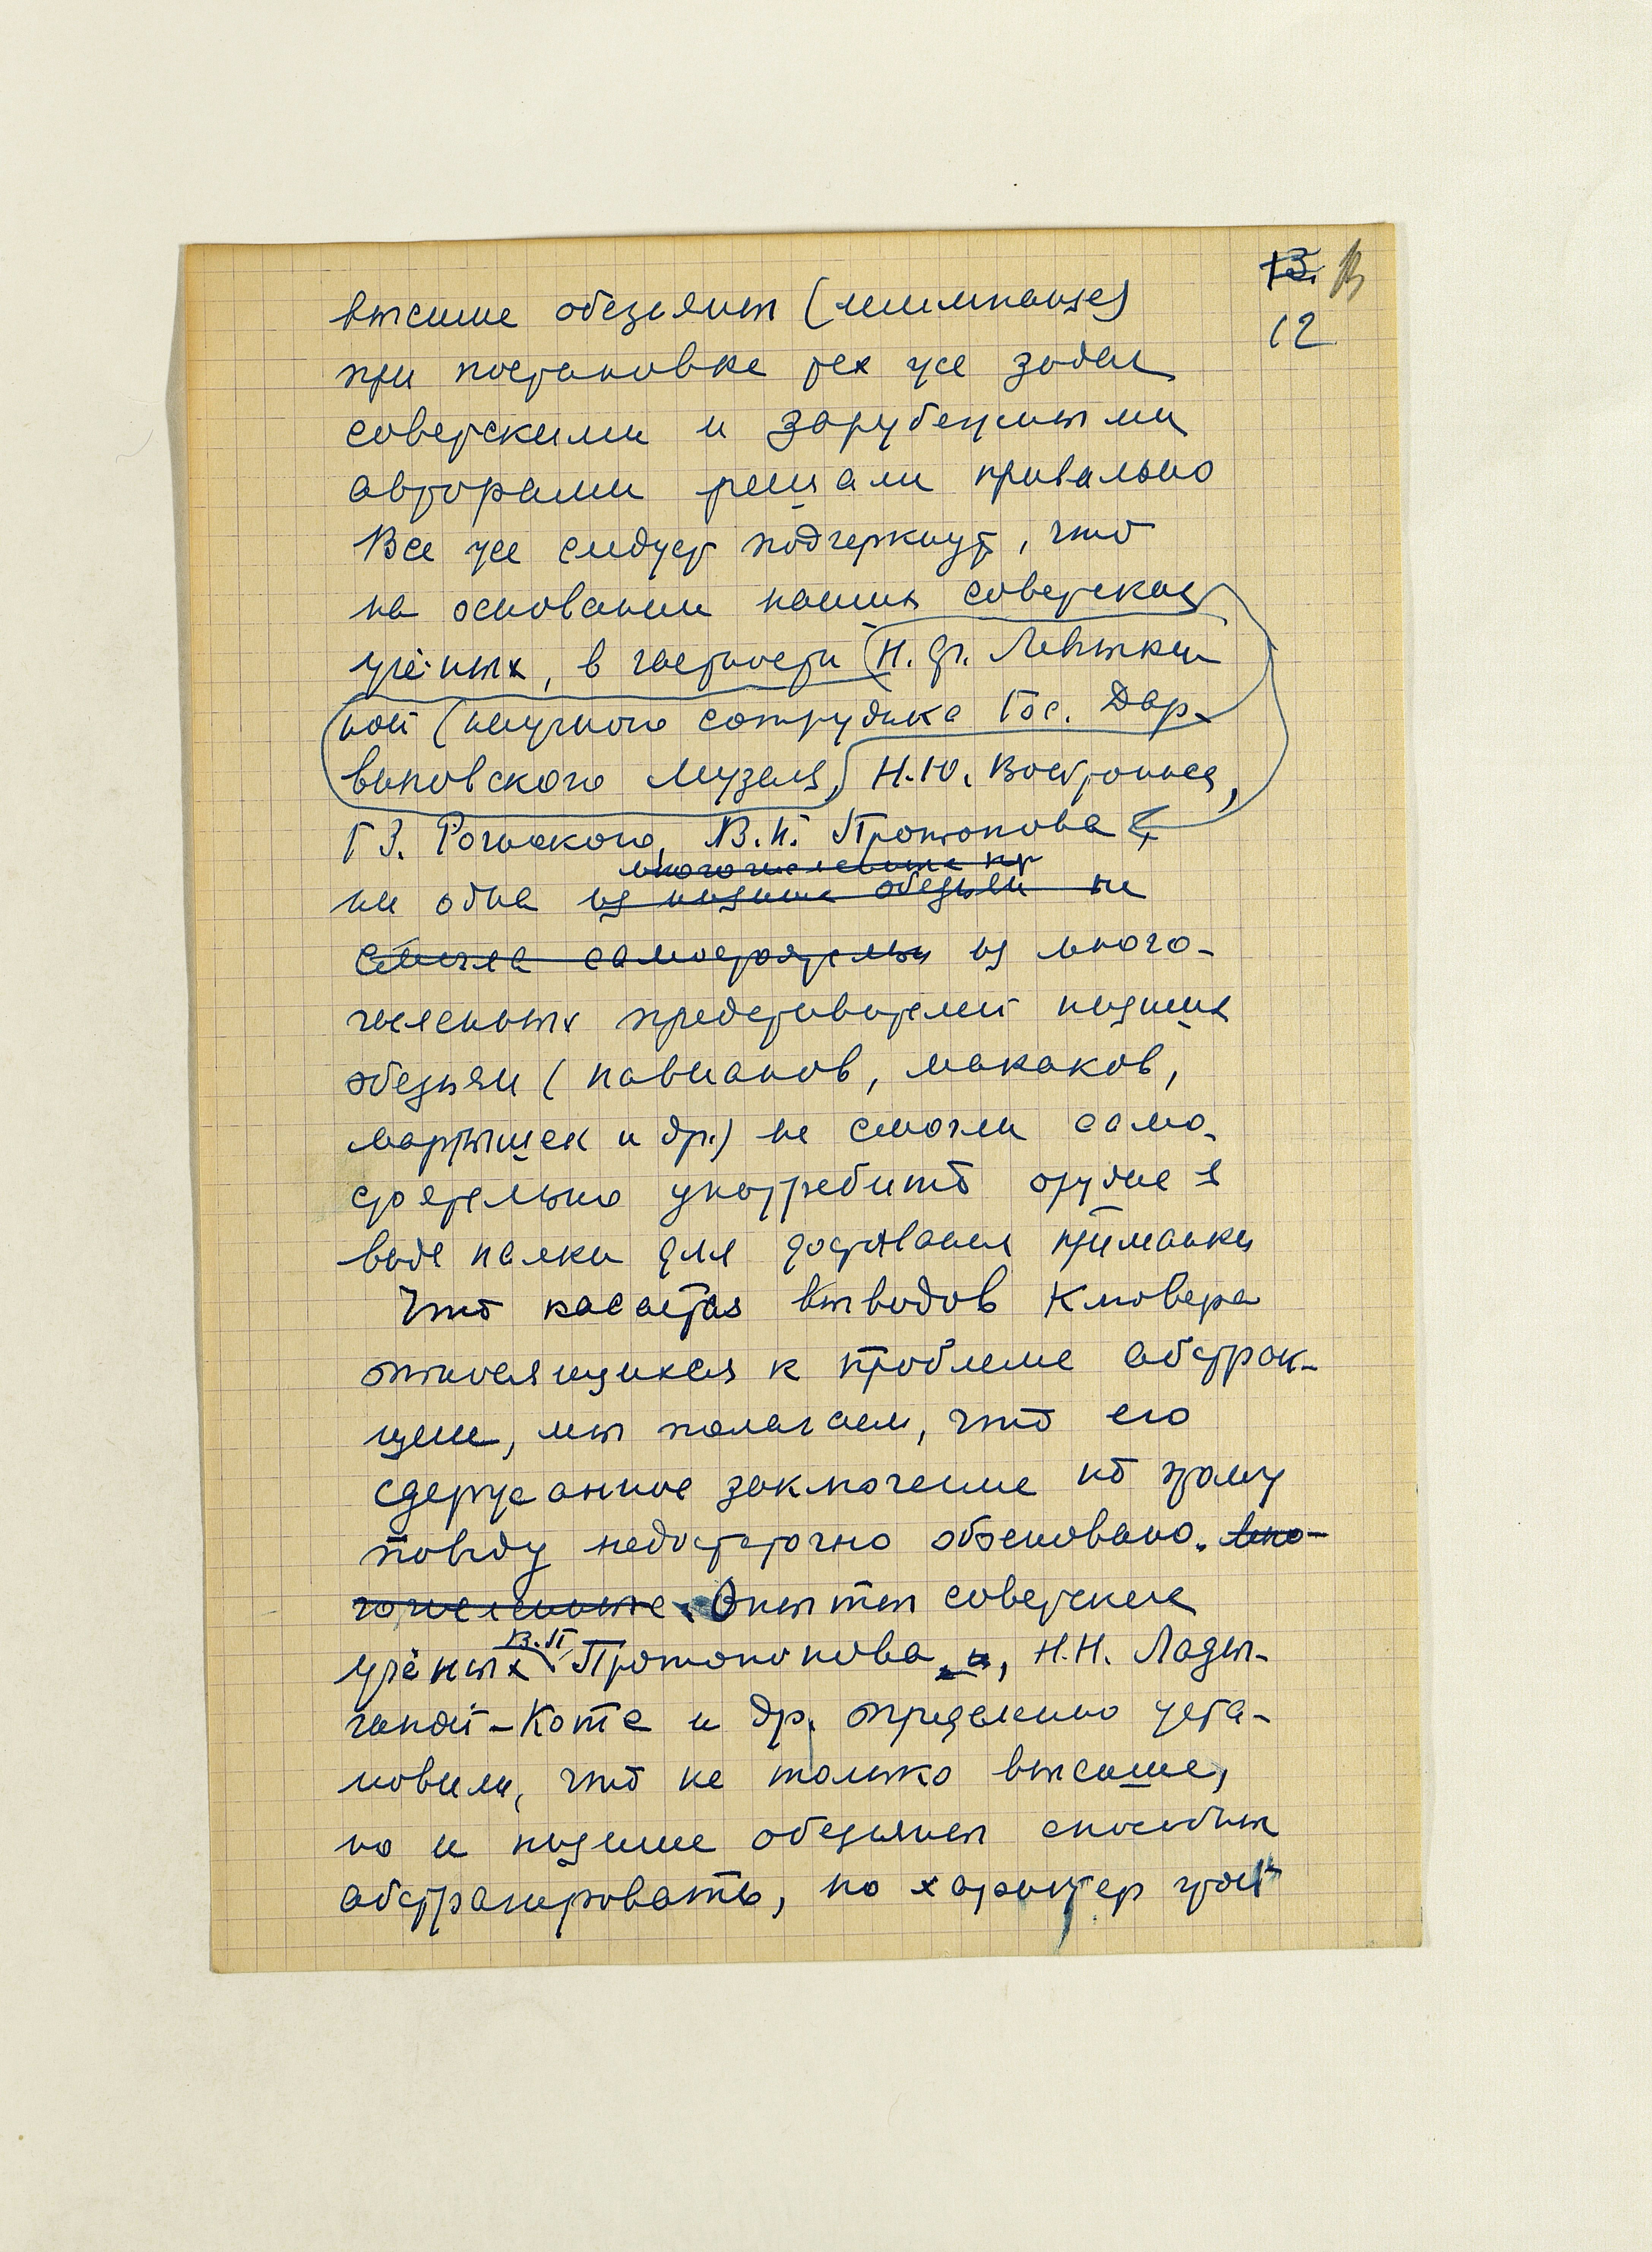 13.
12
высшие обезьяны (шимпанзе)
при постановке тех же задач
советскими и зарубежными
авторами решали правильно
Все же следует подчеркнуть, что
на основании наших советских
учёных, в частности Н. Ф. Левыкин
ной (научного сотрудника Гос. Дар-
виновского Музея), Н.Ю. Войтониса,
Г З. Рогинского, В.П. Протопопова
многочисленные пр
ни одна из низших обезьян не
смогла самостоятельно из много-
численных представителей низших
обезьян (павианов, макаков,
мартышек и др.) не смогли само-
стоятельно употребить орудие в
виде палки для доставания приманки
Что касается выводов Клювера
относящихся к проблеме абстрак-
ции, мы полагаем, что его
сдержанное заключение по этому
поводу недостаточно обосновано. Мно-
гочисленные Опыты советских
учёных В.П Протопопова, Н.Н. Лады-
гиной-Котс и др. определенно уста-
новили, что не только высшие,
но и низшие обезьяны способны
абстрагировать, но характер этой